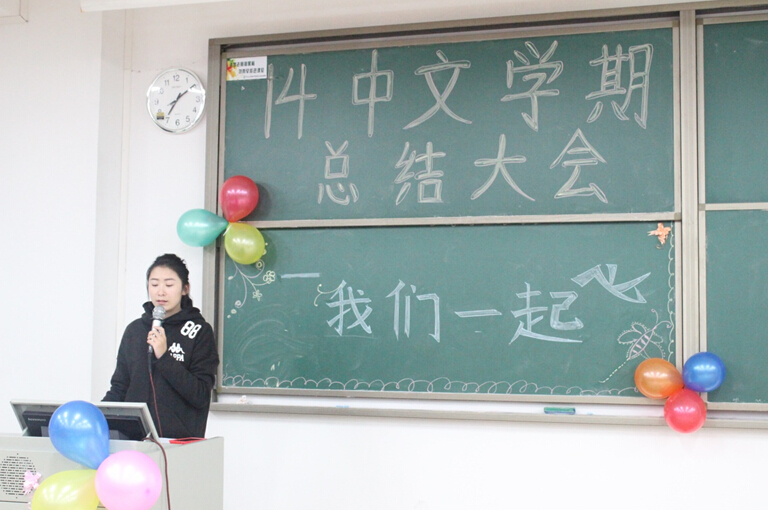 14中文学期
总结大会
我们一起
88